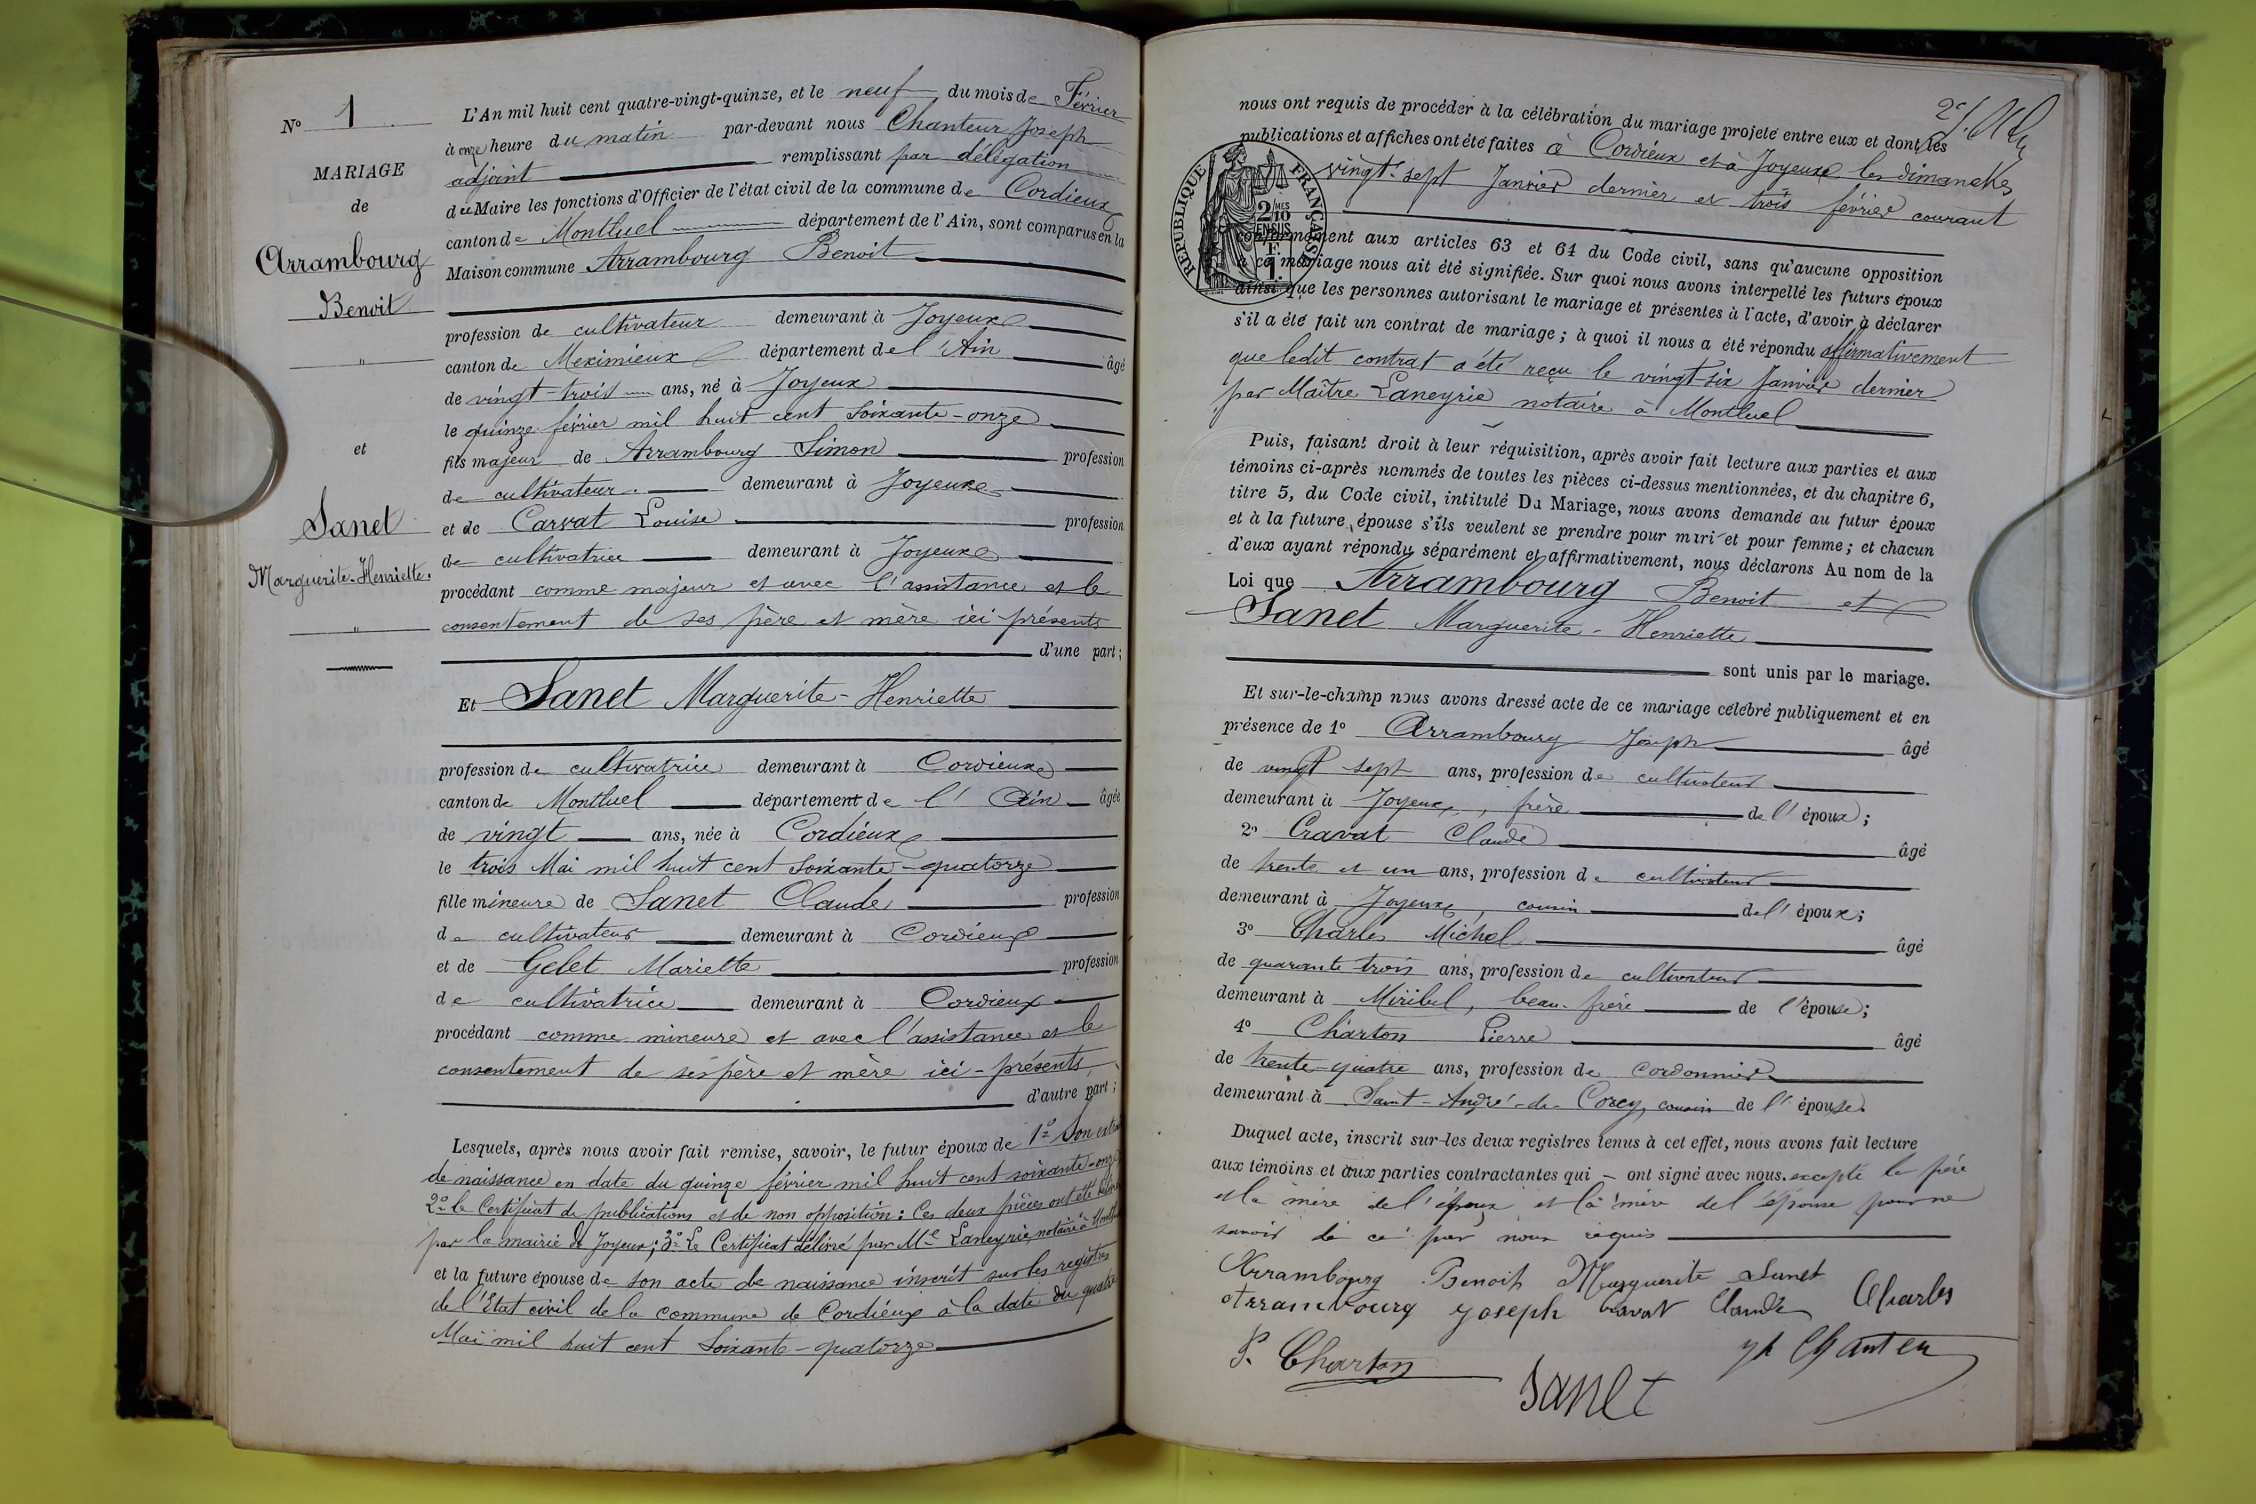 N° 1
MARIAGE
de
Arrambourg
Benoit
"
et
Sanet
Marguerite-Henriette.
"
L'An mil huit cent quatre-vingt-quinze, et le neuf du mois de Février
à onze heure du matin par-devant nous Chanteur Joseph
adjoint remplissant par délégation
du Maire les fonctions d'Officier de l'état civil de la commune de Cordieux
canton de Montluel département de l'Ain, sont comparus en la
Maison commune Arrambourg Benoit
profession de cultivateur demeurant à Joyeux
canton de Meximieux département de l'Ain âgé
de vingt-trois ans, né à Joyeux
le quinze février mil huit cent soixante-onze
fils majeur de Arrambourg Simon profession
de cultivateur. demeurant à Joyeux
et de Carvat Louise profession
de cultivatrice demeurant à Joyeux
procédant comme majeur et avec l'assistance et le
consentement de ses père et mère ici présents
d'une part;
Et Sanet Marguerite-Henriette
profession de cultivatrice demeurant à Cordieux
canton de Montluel département de l'Ain âgée
de vingt ans, née à Cordieux
le trois Mai mil huit cent soixante-quatorze
fille mineure de Sanet Claude profession
de cultivateur demeurant à Cordieux
et de Gelet Mariette profession
de cultivatrice demeurant à Cordieux
procédant comme mineure et avec l'assistance et le
consentement de ses père et mère ici-présents
d'autre part;
Lesquels, après nous avoir fait remise, savoir, le futur époux de 1° Son
de naissance en date du quinze février mil huit cent soixante-onze
2° le Certificat de publications et de non opposition: Ces deux pièces ont été
par la mairie de Joyeux; 3° Le Certificat délivré par Me Laneyrie, notaire à
et la future épouse de son acte de naissance inscrit sur les registres
de l'Etat civil de la commune de Cordieux à la date du quatre
Mai mil huit cent soixante-quatorze
nous ont requis de procéder à la célébration du mariage projeté entre eux et dont les
publications et affiches ont été faites à Cordieux et à Joyeux les dimanches
vingt-sept Janvier dernier et trois février courant
RÉPUBLIQUE FRANÇAISE
2/10 MES
EN SUS
1 F.
conformément aux articles 63 et 64 du Code civil, sans qu'aucune opposition
à ce mariage nous ait été signifiée. Sur quoi nous avons interpellé les futurs époux
ainsi que les personnes autorisant le mariage et présentes à l'acte, d'avoir à déclarer
s'il a été fait un contrat de mariage; à quoi il nous a été répondu affirmativement
que ledit contrat a été reçu le vingt-six Janvier dernier
par Maître Laneyrie notaire à Montluel
Puis, faisant droit à leur réquisition, après avoir fait lecture aux parties et aux
témoins ci-après nommés de toutes les pièces ci-dessus mentionnées, et du chapitre 6,
titre 5, du Code civil, intitulé Du Mariage, nous avons demandé au futur époux
et à la future épouse s'ils veulent se prendre pour mari et pour femme; et chacun
d'eux ayant répondu séparément et affirmativement, nous déclarons Au nom de la
Loi que Arrambourg Benoit et
Sanet Marguerite-Henriette
sont unis par le mariage.
Et sur-le-champ nous avons dressé acte de ce mariage célébré publiquement et en
présence de 1° Arrambourg Joseph âgé
de vingt sept ans, profession de cultivateur
demeurant à Joyeux, frère de l'époux;
2° Cravat Claude âgé
de trente et un ans, profession de cultivateur
demeurant à Joyeux, cousin de l'époux;
3° Charles Michel âgé
de quarante trois ans, profession de cultivateur
demeurant à Miribel, beau-frère de l'épouse;
4° Charton Pierre âgé
de trente-quatre ans, profession de cordonnier
demeurant à Saint-André-de-Corcy, cousin de l'épouse.
Duquel acte, inscrit sur les deux registres tenus à cet effet, nous avons fait lecture
aux témoins et aux parties contractantes qui ont signé avec nous. excepté le père
et la mère de l'époux et la mère de l'épouse pour ne
savoir de ce par nous requis
Arrambourg Benoit Marguerite Sanet
Arrambourg Joseph Cravat Claude Charles
P. Charton Jh Chanteur
Sanet